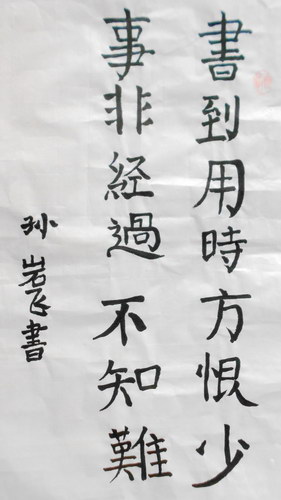 書到用時方恨少
事非經過不知難
孙岩飞書